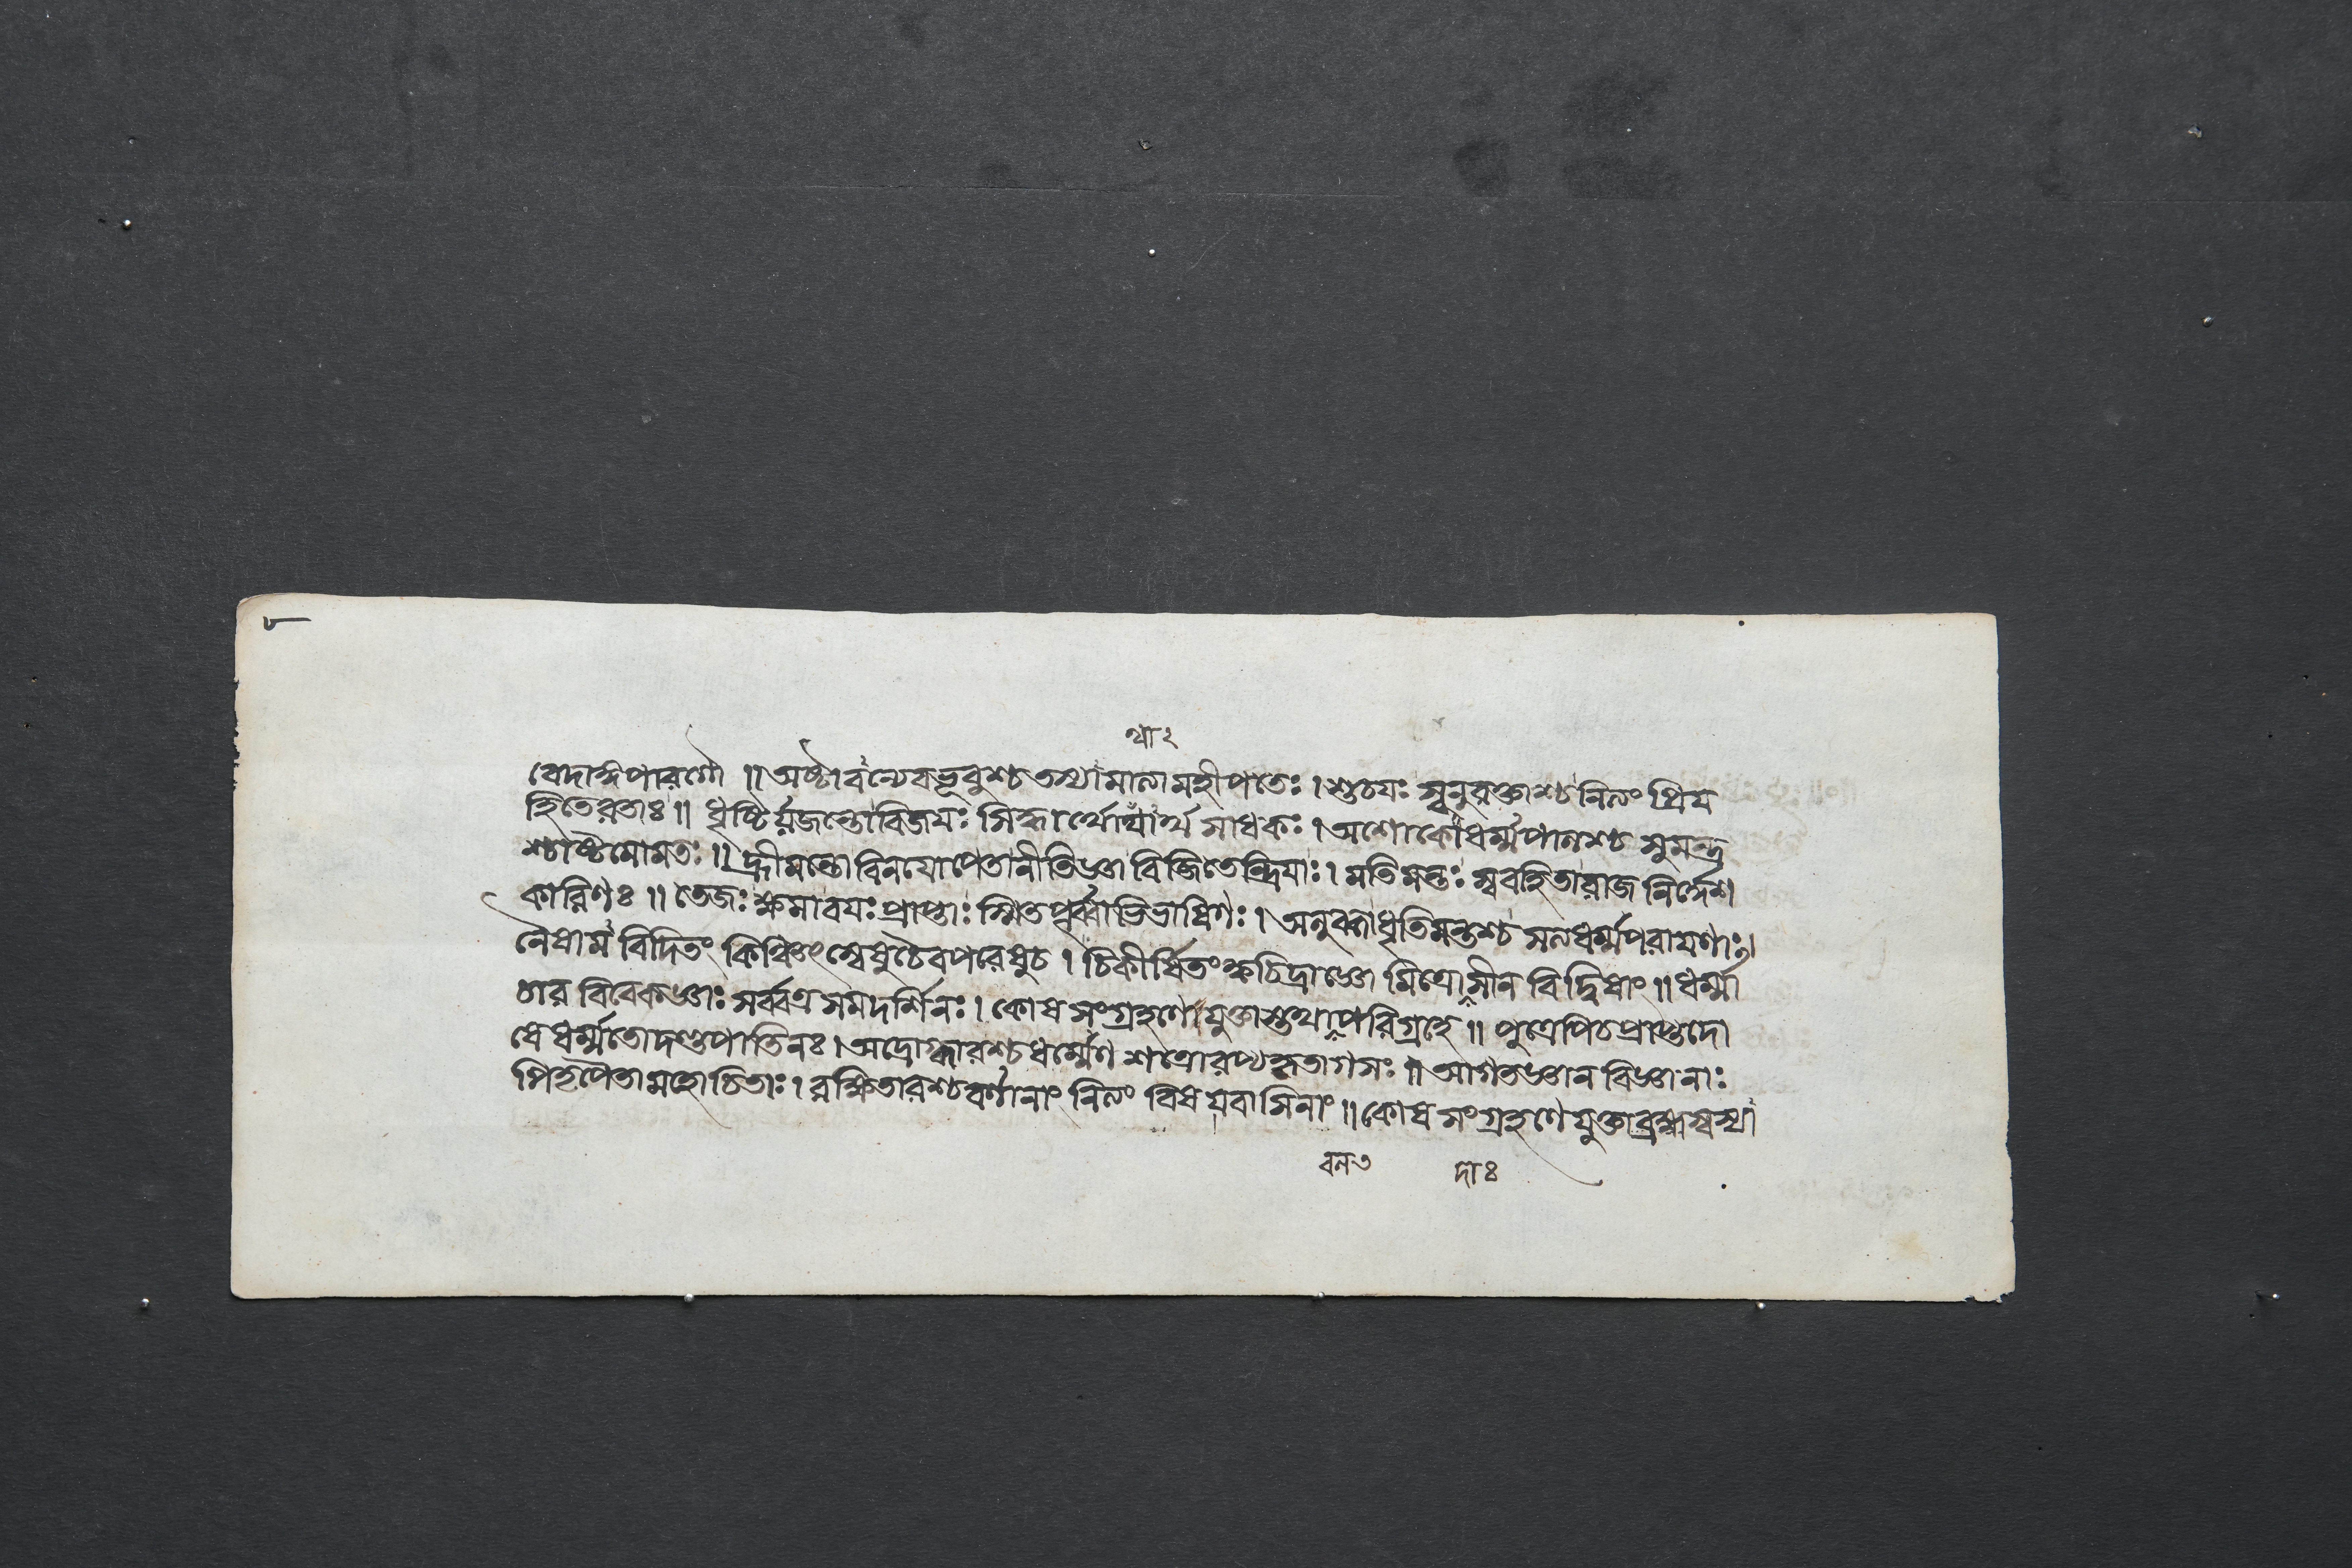 থা২
বেদাঙ্গপারগৌ ॥ অষ্টাবন্যে বভূবুশ্চ তস্যামাত্যা মহীপতেঃ । শুচয়ঃ স্বনুরক্তাশ্চ নিত্যং প্রিয়
হিতে রতাঃ ॥ ধৃষ্টির্য়জন্তো বিজয়ঃ সিদ্ধার্থোপ্যর্থসাধকঃ । অশোকো ধর্ম্মপালশ্চ সুমন্ত্র
শ্চাষ্টমো মতঃ ॥ হ্রীমন্তো বিনয়োপেতা নীতিজ্ঞা বিজিতেন্দ্রিয়াঃ । মতিমন্তঃ স্ববহিতা রাজনির্দ্দেশ
কারিণঃ ॥ তেজঃক্ষমাবয়ঃপ্রাপ্তাঃ স্মিতপূর্ব্বাভিভাষিণঃ । অলুব্ধা ধৃতিমন্তশ্চ সত্যধর্ম্মপরায়ণাঃ ॥
নৈষামবিদিতং কিঞ্চিৎ স্বেষু চৈব পরেষু চ । চিকীর্ষিতং ক্ষচিদ্রাজ্ঞো মিত্রোসীন বিদ্বিষাং ॥ ধর্ম্মা
চার বিবেকজ্ঞাঃ সর্ব্বত্র সমদর্শিনঃ । কোষসংগ্রহণে যুক্তাস্তথা পরিগ্রহে ॥ পুত্রেপি চ প্রাপ্তদো
ষে ধর্ম্মতো দণ্ডপাতিনঃ । অদ্রোগ্ধারশ্চ ধর্ম্মেণ শত্রোরপ্যকৃতাগসঃ ॥ আগতজ্ঞানবিজ্ঞানাঃ
পিতৃপৈতামহোচিতাঃ । রক্ষিতারশ্চ বর্ণানাং নিত্যং বিষয়বাসিনাং ॥ কোষসংগ্রহণে যুক্তা ব্রহ্মস্বস্যা
বল৭ দাঃ